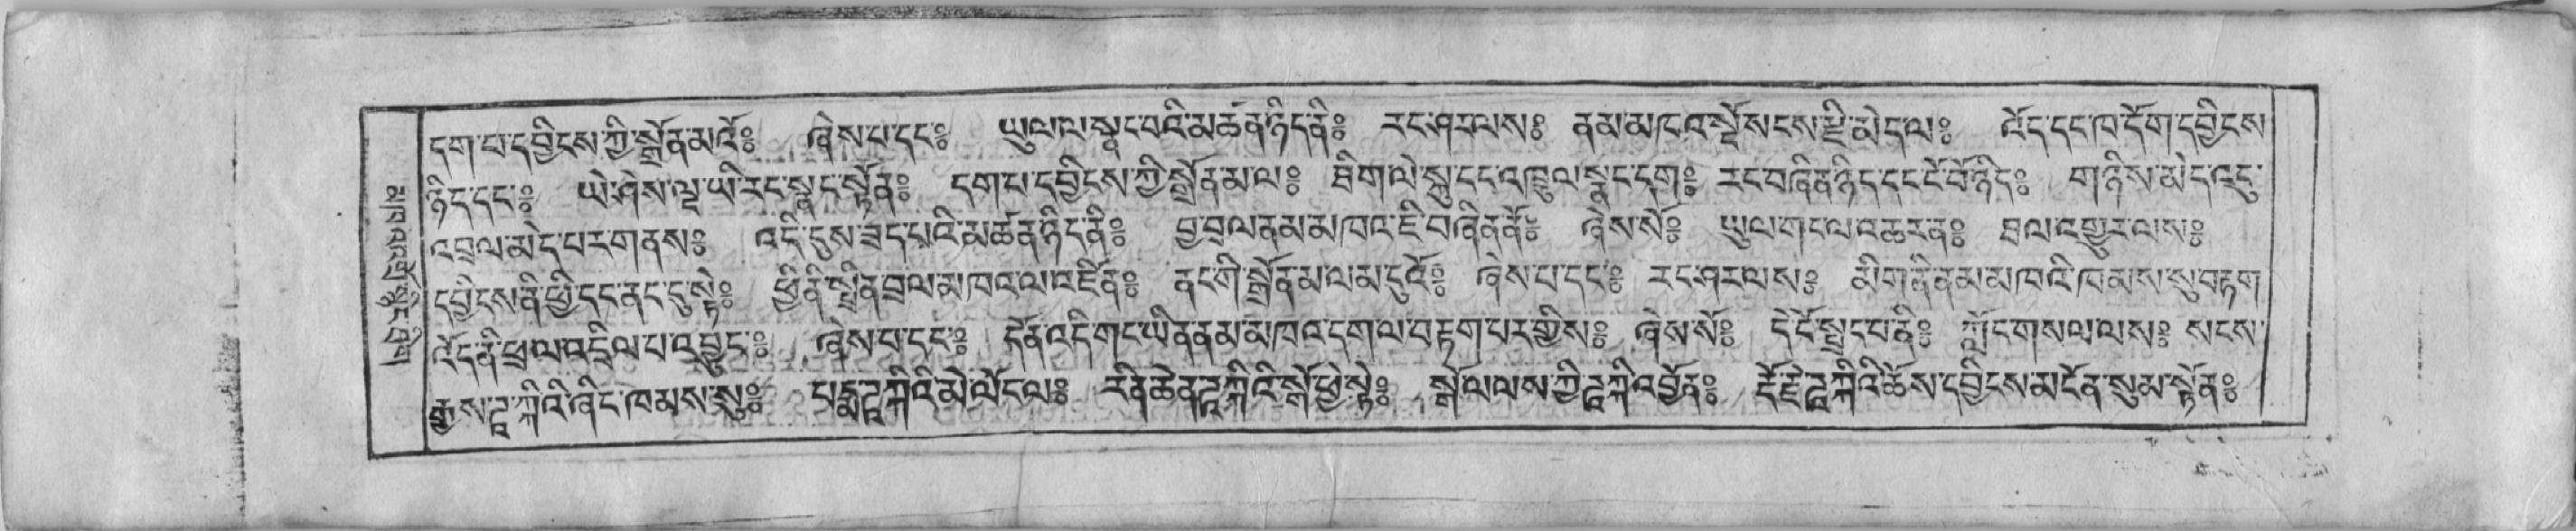 དག་པ་དབྱིངས་ཀྱི་སྒྲོན་མའོ༔ ཞེས་པ་དང་༔ ཡུལ་ལ་སྣང་བའི་མཚན་ཉིད་ནི༔ རང་ཤར་ལས༔ ནམ་མཁའ་སྔོ་སངས་རྫི་མེད་ལ༔ འོད་དང་ཁ་དོག་དབྱིངས
ཉིད་དང་༔ ཡེ་ཤེས་ལྔ་ཡི་རང་སྣང་སྟོན༔ དག་པ་དབྱིངས་ཀྱི་སྒྲོན་མ་ལ༔ ཐིག་ལེ་སྐུ་དང་འཁྲུལ་སྣང་དག༔ རང་བཞིན་ཉིད་དང་ངོ་བོ་ཉིད༔ གཉིས་མེད་འདུ་
འབྲལ་མེད་པར་གནས༔ འདི་དུས་ཟད་པའི་མཚན་ཉིད་ནི༔ བྱ་བྲལ་ནམ་མཁའ་ཇི་བཞིན་ནོ༔ ཞེས་སོ༔ ཡུལ་གང་ལ་འཆར་ན༔ ཐལ་འགྱུར་ལས༔
དབྱིངས་ནི་ཕྱི་དང་ནང་དུ་སྟེ༔ ཕྱི་ནི་སྤྲིན་བྲལ་མཁའ་ལ་འཛིན༔ ནང་གི་སྒྲོན་མ་ལམ་དུའོ༔ ཞེས་པ་དང་༔ རང་ཤར་ལས༔ མིག་ནི་ནམ་མཁའི་ཁམས་སུ་བརྟག
འོད་ནི་ཕྲལ་འདྲིལ་པ་འབྱུང་༔ ཞེས་པ་དང་༔ དོན་འདི་གང་ཡིན་ནམ་མཁའ་དག་ལ་བརྟག་པར་གྱིས༔ ཞེས་སོ༔ དེ་ངོ་སྤྲད་པ་ནི༔ ཀློང་གསལ་ལས༔ སངས་
རྒྱས་ཌཱ་ཀིའི་ཞིང་ཁམས་སུ༔ པདྨ་ཌཱ་ཀིའི་མེ་ལོང་ལ༔ རིན་ཆེན་ཌཱ་ཀིའི་སྒོ་ཕྱེ་སྟེ༔ སྒྲོལ་ལས་ཀྱི་ཌཱ་ཀི་འབྱོན༔ རྡོ་རྗེ་ཌཱ་ཀིའི་ཆོས་དབྱིངས་མངོན་སུམ་སྟོན༔